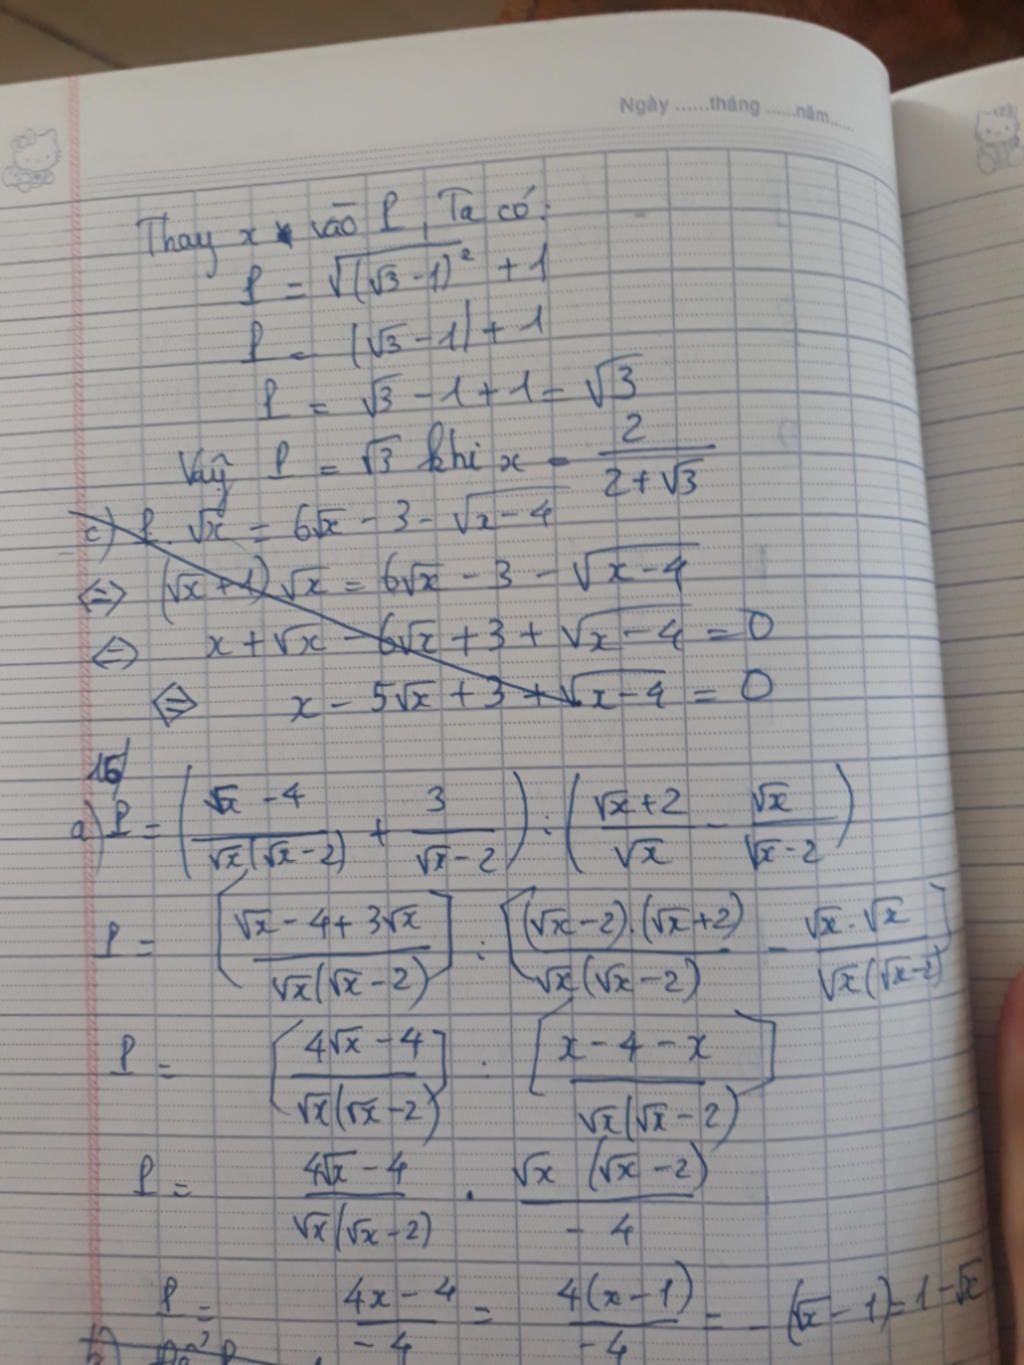 Ngày ......tháng ......năm......
Thay x vào P, Ta có:
P = √(√3-1)² + 1
P = |√3-1| + 1
P = √3 - 1 + 1 = √3
Vậy P = √3 khi x = 2/(2+√3)
c) P.√x = 6√x - 3 - √x-4
<=> (√x+1)√x = 6√x - 3 - √x-4
<=> x + √x - 6√x + 3 + √x-4 = 0
<=> x - 5√x + 3 + √x-4 = 0
15/
a) P = ( (√x-4)/(√x(√x-2)) + 3/(√x-2) ) : ( (√x+2)/√x - √x/(√x-2) )
P = [ (√x-4+3√x)/(√x(√x-2)) ] : [ ((√x-2).(√x+2))/(√x(√x-2)) - (√x.√x)/(√x(√x-2)) ]
P = [ (4√x-4)/(√x(√x-2)) ] : [ (x-4-x)/(√x(√x-2)) ]
P = (4√x-4)/(√x(√x-2)) . (√x (√x-2))/(-4)
P = (4x-4)/(-4) = (4(x-1))/(-4) = -(√x-1) = 1-√x